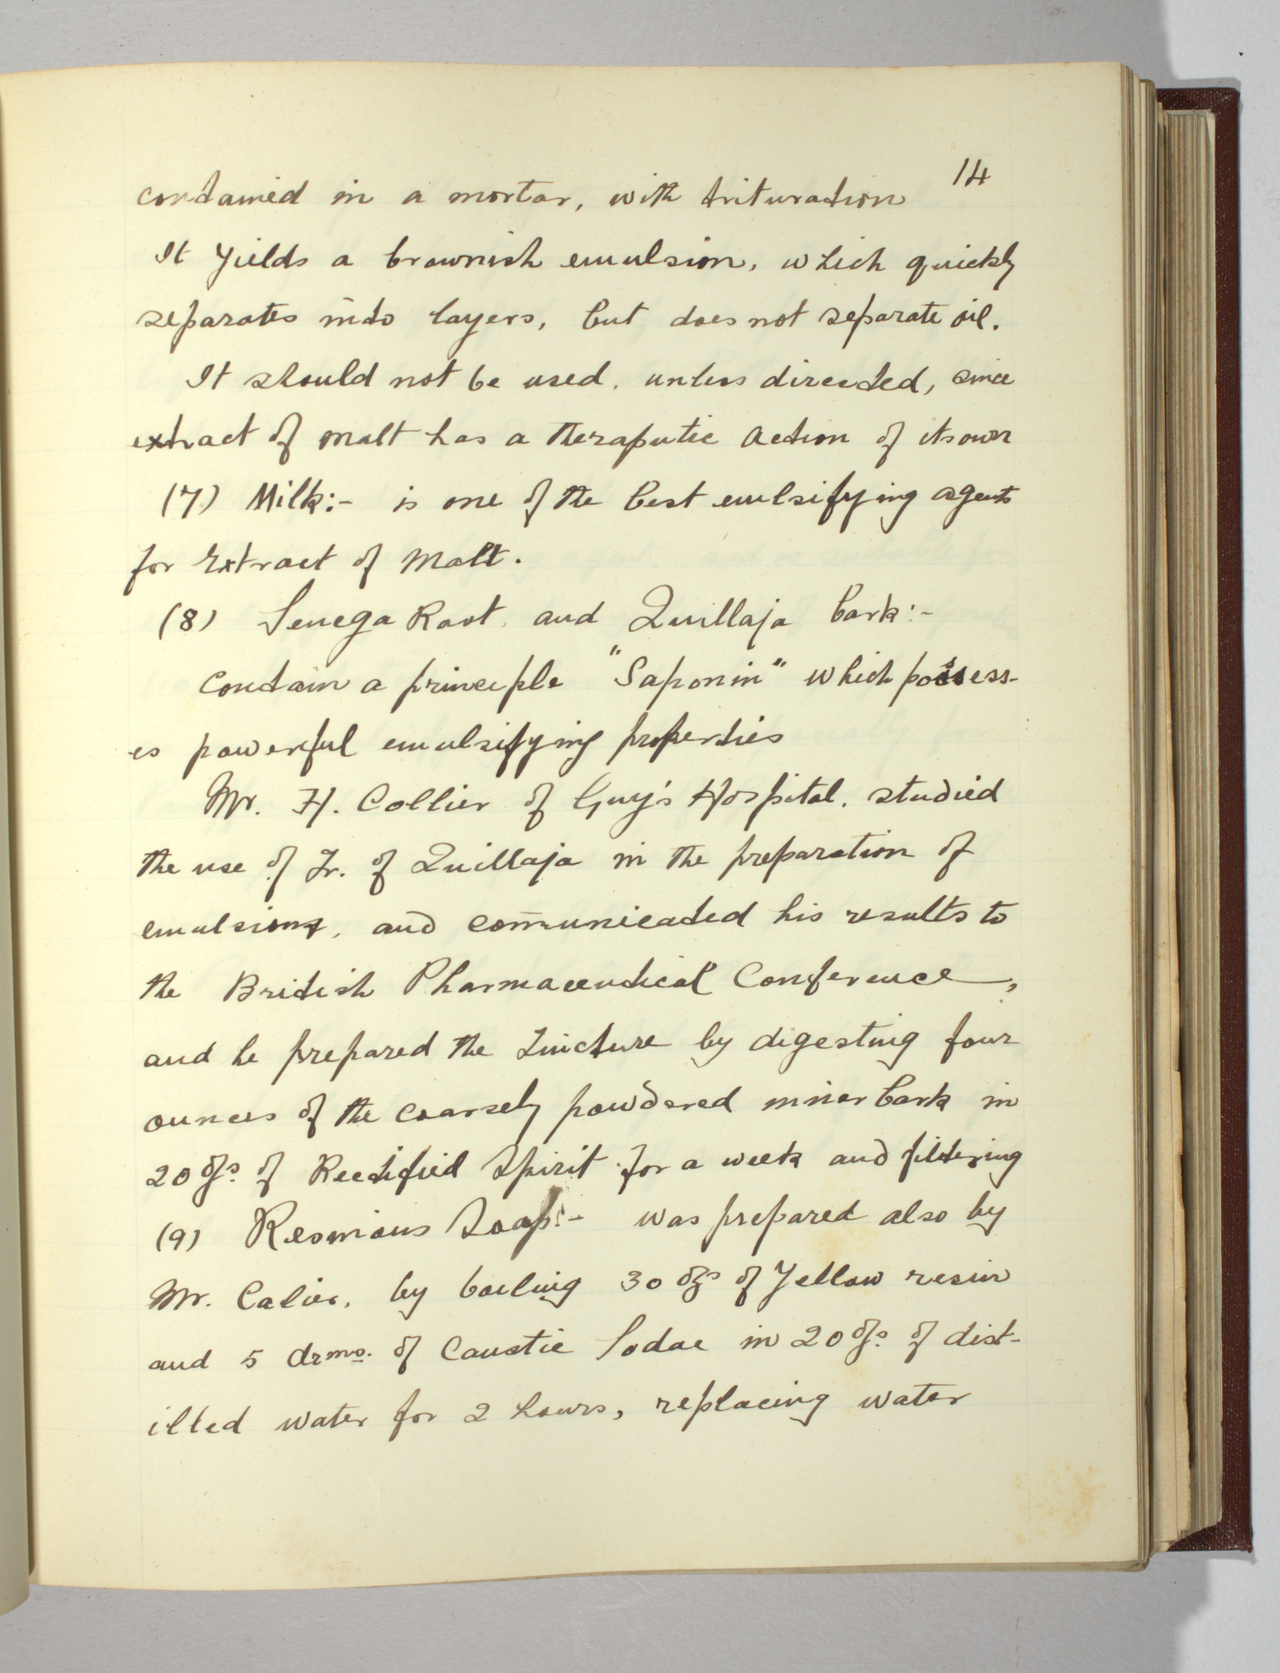 14
contained in a mortar, with trituration
It yields a brownish emulsion, which quickly
separates into layers, but does not separate oil.
It should not be used, unless directed, since
extract of malt has a theraputic action of its own
(7) Milk:- is one of the best emulsifying agents
for Extract of Malt.
(8) Senega Root and Quillaja bark:-
contain a principle "Saponin" which possess-
es powerful emulsifying properties
Mr. H. Collier of Guy's Hospital, studied
the use of Tr. of Quillaja in the preparation of
emulsions, and com̄unicated his results to
the British Pharmaceutical Conference,
and he prepared the tincture by digesting four
ounces of the coarsely powdered inner bark in
20 ozs. of Rectified Spirit for a week and filtering
(9) Resinous Soap:- was prepared also by
Mr. Calier, by boiling 30 ozs of Yellow resin
and 5 drms. of Caustic Sodae in 20 ozs. of dist-
illed water for 2 hours, replacing water